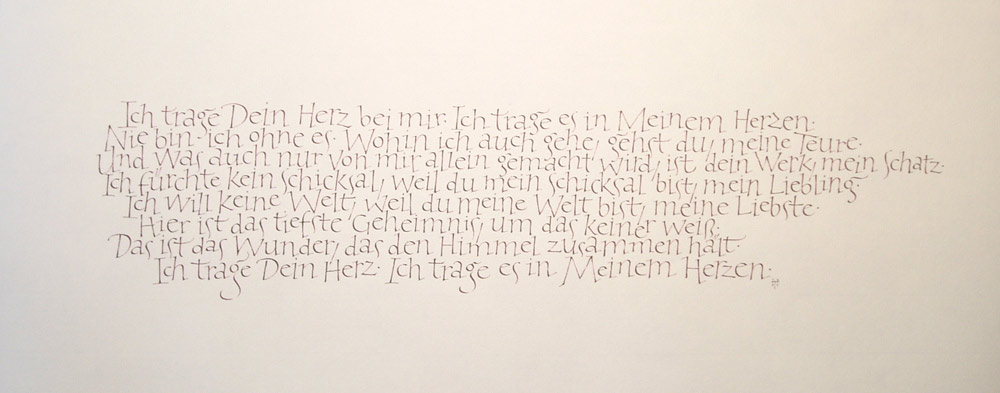 Ich trage Dein Herz bei mir. Ich trage es in Meinem Herzen.
Nie bin ich ohne es. Wohin ich auch gehe, gehst du, meine Teure.
Und was auch nur von mir allein gemacht wird, ist dein Werk, mein Schatz.
Ich fürchte kein Schicksal, weil du mein Schicksal bist, mein Liebling.
Ich will keine Welt, weil du meine Welt bist, meine Liebste.
Hier ist das tiefste Geheimnis, um das keiner weiß.
Das ist das Wunder, das den Himmel zusammen hält.
Ich trage Dein Herz. Ich trage es in Meinem Herzen.